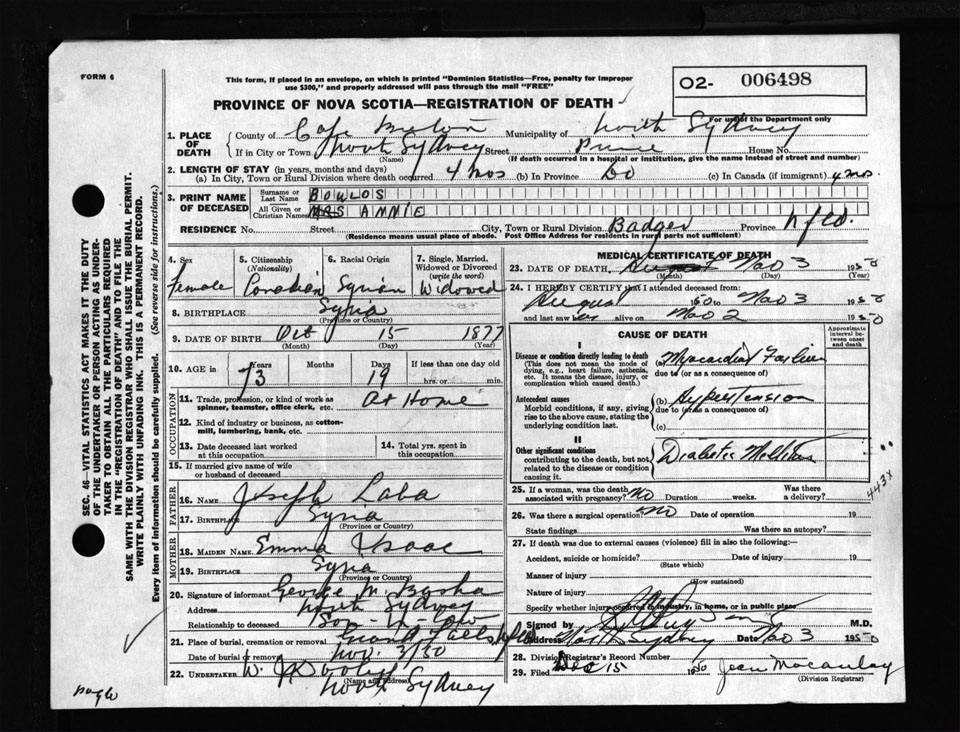 FORM 6
This form, if placed in an envelope, on which is printed "Dominion Statistics—Free, penalty for improper
use $300," and properly addressed will pass through the mail "FREE"
O2- 006498
PROVINCE OF NOVA SCOTIA—REGISTRATION OF DEATH
For use of the Department only
1. PLACE OF DEATH { County of Cape Breton Municipality of North Sydney
If in City or Town North Sydney Street Prince House No.
(Name) (If death occurred in a hospital or institution, give the name instead of street and number)
2. LENGTH OF STAY (in years, months and days)
(a) In City, Town or Rural Division where death occurred 4 mos (b) In Province Do (c) In Canada (if immigrant) 4 mos.
3. PRINT NAME OF DECEASED { Surname or Last Name BOULOS
All Given or Christian Names MRS ANNIE
RESIDENCE No. Street City, Town or Rural Division Badger Province Nfld.
(Residence means usual place of abode. Post Office Address for residents in rural parts not sufficient)
4. Sex Female
5. Citizenship (Nationality) Canadian
6. Racial Origin Syrian
7. Single, Married, Widowed or Divorced (write the word) Widowed
8. BIRTHPLACE Syria
(Province or Country)
9. DATE OF BIRTH Oct 15 1877
(Month) (Day) (Year)
10. AGE in Years 73 Months Days 19 If less than one day
hrs. or min.
OCCUPATION
11. Trade, profession, or kind of work as
spinner, teamster, office clerk, etc. At Home
12. Kind of industry or business, as cotton-
mill, lumbering, bank, etc.
13. Date deceased last worked
at this occupation
14. Total yrs. spent in
this occupation
15. If married give name of wife
or husband of deceased
FATHER
16. NAME Joseph Laba
17. BIRTHPLACE Syria
(Province or Country)
MOTHER
18. MAIDEN NAME Emma Isaac
19. BIRTHPLACE Syria
(Province or Country)
20. Signature of informant George M. Basha
Address North Sydney
Relationship to deceased Son-in-law
21. Place of burial, cremation or removal Grand Falls Nfld
Date of burial or removal Nov. 3/50
22. UNDERTAKER W. J. Dooley
(Name and address)
North Sydney
MEDICAL CERTIFICATE OF DEATH
23. DATE OF DEATH August Nov 3 1950
(Month) (Day) (Year)
24. I HEREBY CERTIFY that I attended deceased from:
August 1950 to Nov 3 1950
and last saw her alive on Nov 2 1950
CAUSE OF DEATH
Approximate interval between onset and death
I
Disease or condition directly leading to death
(This does not mean the mode of
dying, e.g., heart failure, asthenia,
etc. It means the disease, injury, or
complication which caused death.)
(a) Myocardial Failure
due to (or as a consequence of)
Antecedent causes
Morbid conditions, if any, giving
rise to the above cause, stating the
underlying condition last.
(b) Hypertension
due to (or as a consequence of)
(c)
II
Other significant conditions
contributing to the death, but not
related to the disease or condition
causing it.
Diabetes Mellitus
443X
25. If a woman, was the death
associated with pregnancy? No Duration weeks. Was there
a delivery?
26. Was there a surgical operation? No Date of operation 19
State findings Was there an autopsy?
27. If death was due to external causes (violence) fill in also the following:—
Accident, suicide or homicide? Date of injury 19
(State which)
Manner of injury
(How sustained)
Nature of injury
Specify whether injury occurred in industry, in home, or in public place
Signed by M.D.
Address North Sydney Date Nov 3 1950
28. Division Registrar's Record Number
29. Filed Dec 15 1950 Jean Macaulay
(Division Registrar)
SEC. 46—VITAL STATISTICS ACT MAKES IT THE DUTY
OF THE UNDERTAKER OR PERSON ACTING AS UNDER-
TAKER TO OBTAIN ALL THE PARTICULARS REQUIRED
IN THE "REGISTRATION OF DEATH" AND TO FILE THE
SAME WITH THE DIVISION REGISTRAR WHO SHALL ISSUE THE BURIAL PERMIT.
WRITE PLAINLY WITH UNFADING INK. THIS IS A PERMANENT RECORD.
Every item of information should be carefully supplied. (See reverse side for instructions.)